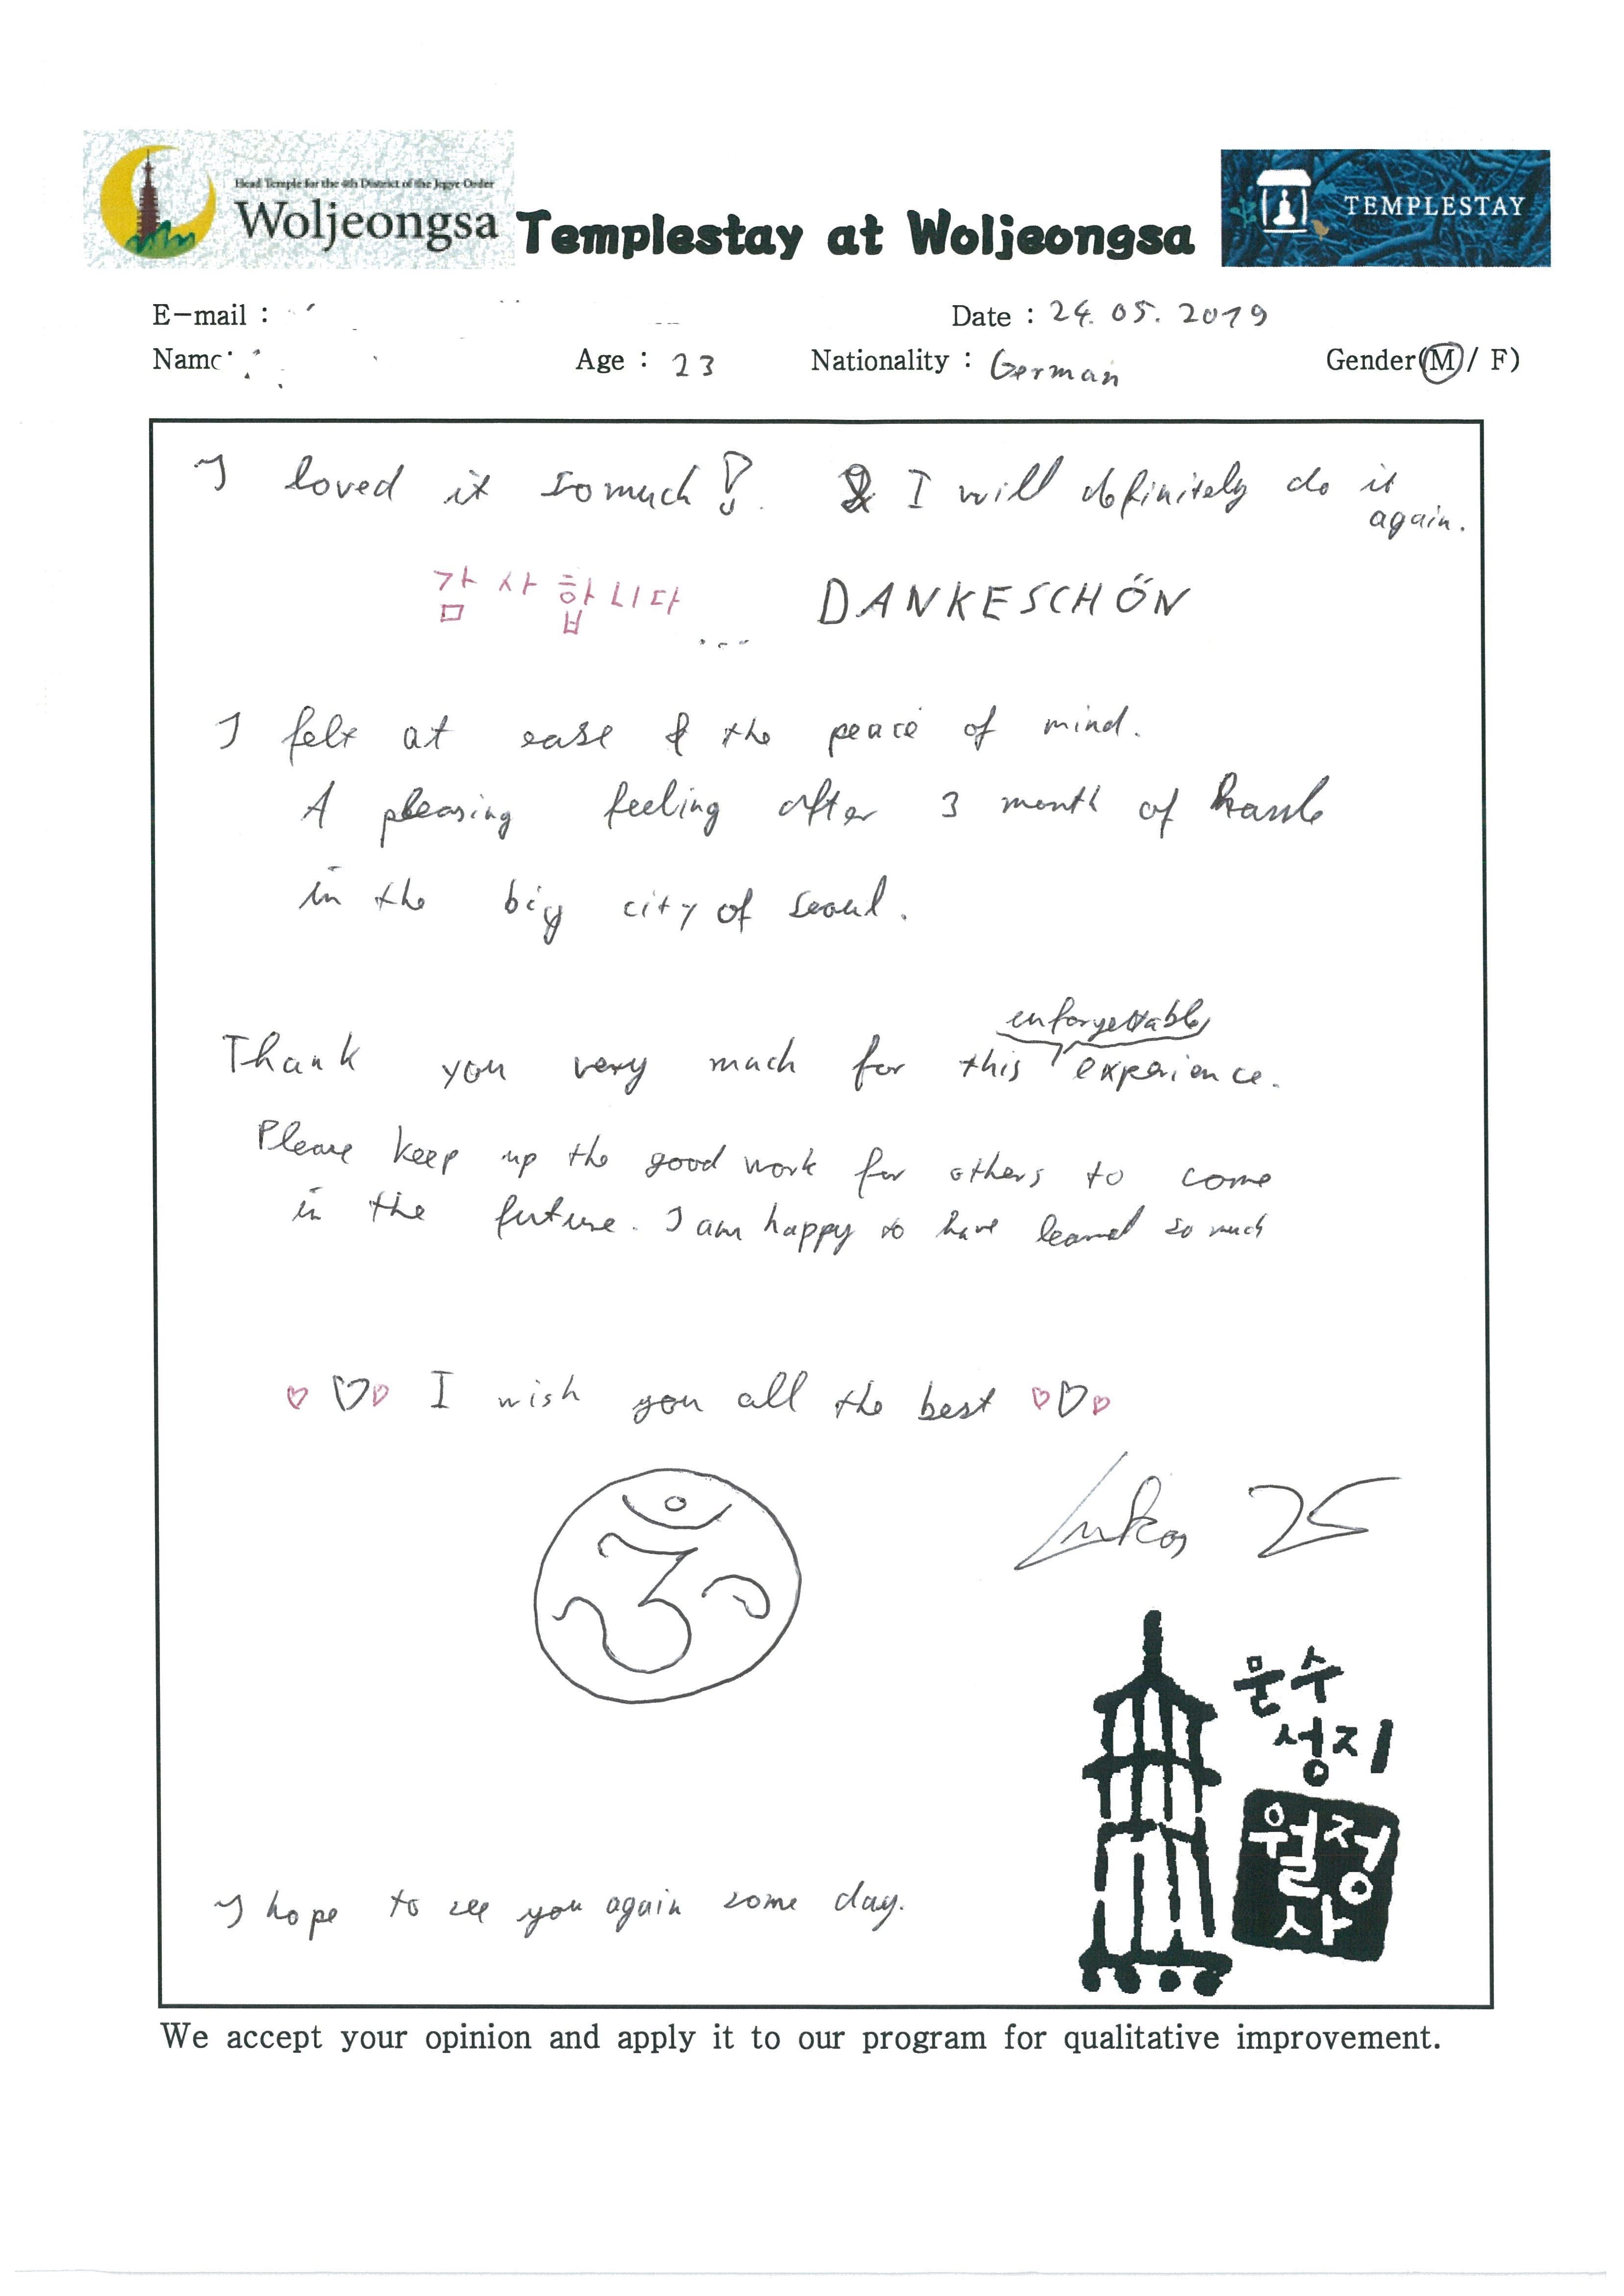 Head Temple for the 4th District of the Jogye Order
Woljeongsa
Templestay at Woljeongsa
TEMPLESTAY
E-mail :
Date : 24. 05. 2019
Name
Age : 23
Nationality : German
Gender(M / F)
I loved it so much! & I will definitely do it
again.
감사합니다... DANKESCHÖN
I felt at ease & the peace of mind.
A pleasing feeling after 3 month of hassle
in the big city of Seoul.
unforgettable
Thank you very much for this experience.
Please keep up the good work for others to come
in the future. I am happy to have learned so much
♡♡♡ I wish you all the best ♡♡♡
ॐ
Lukas 25
문수
성지
월정
사
I hope to see you again some day.
We accept your opinion and apply it to our program for qualitative improvement.